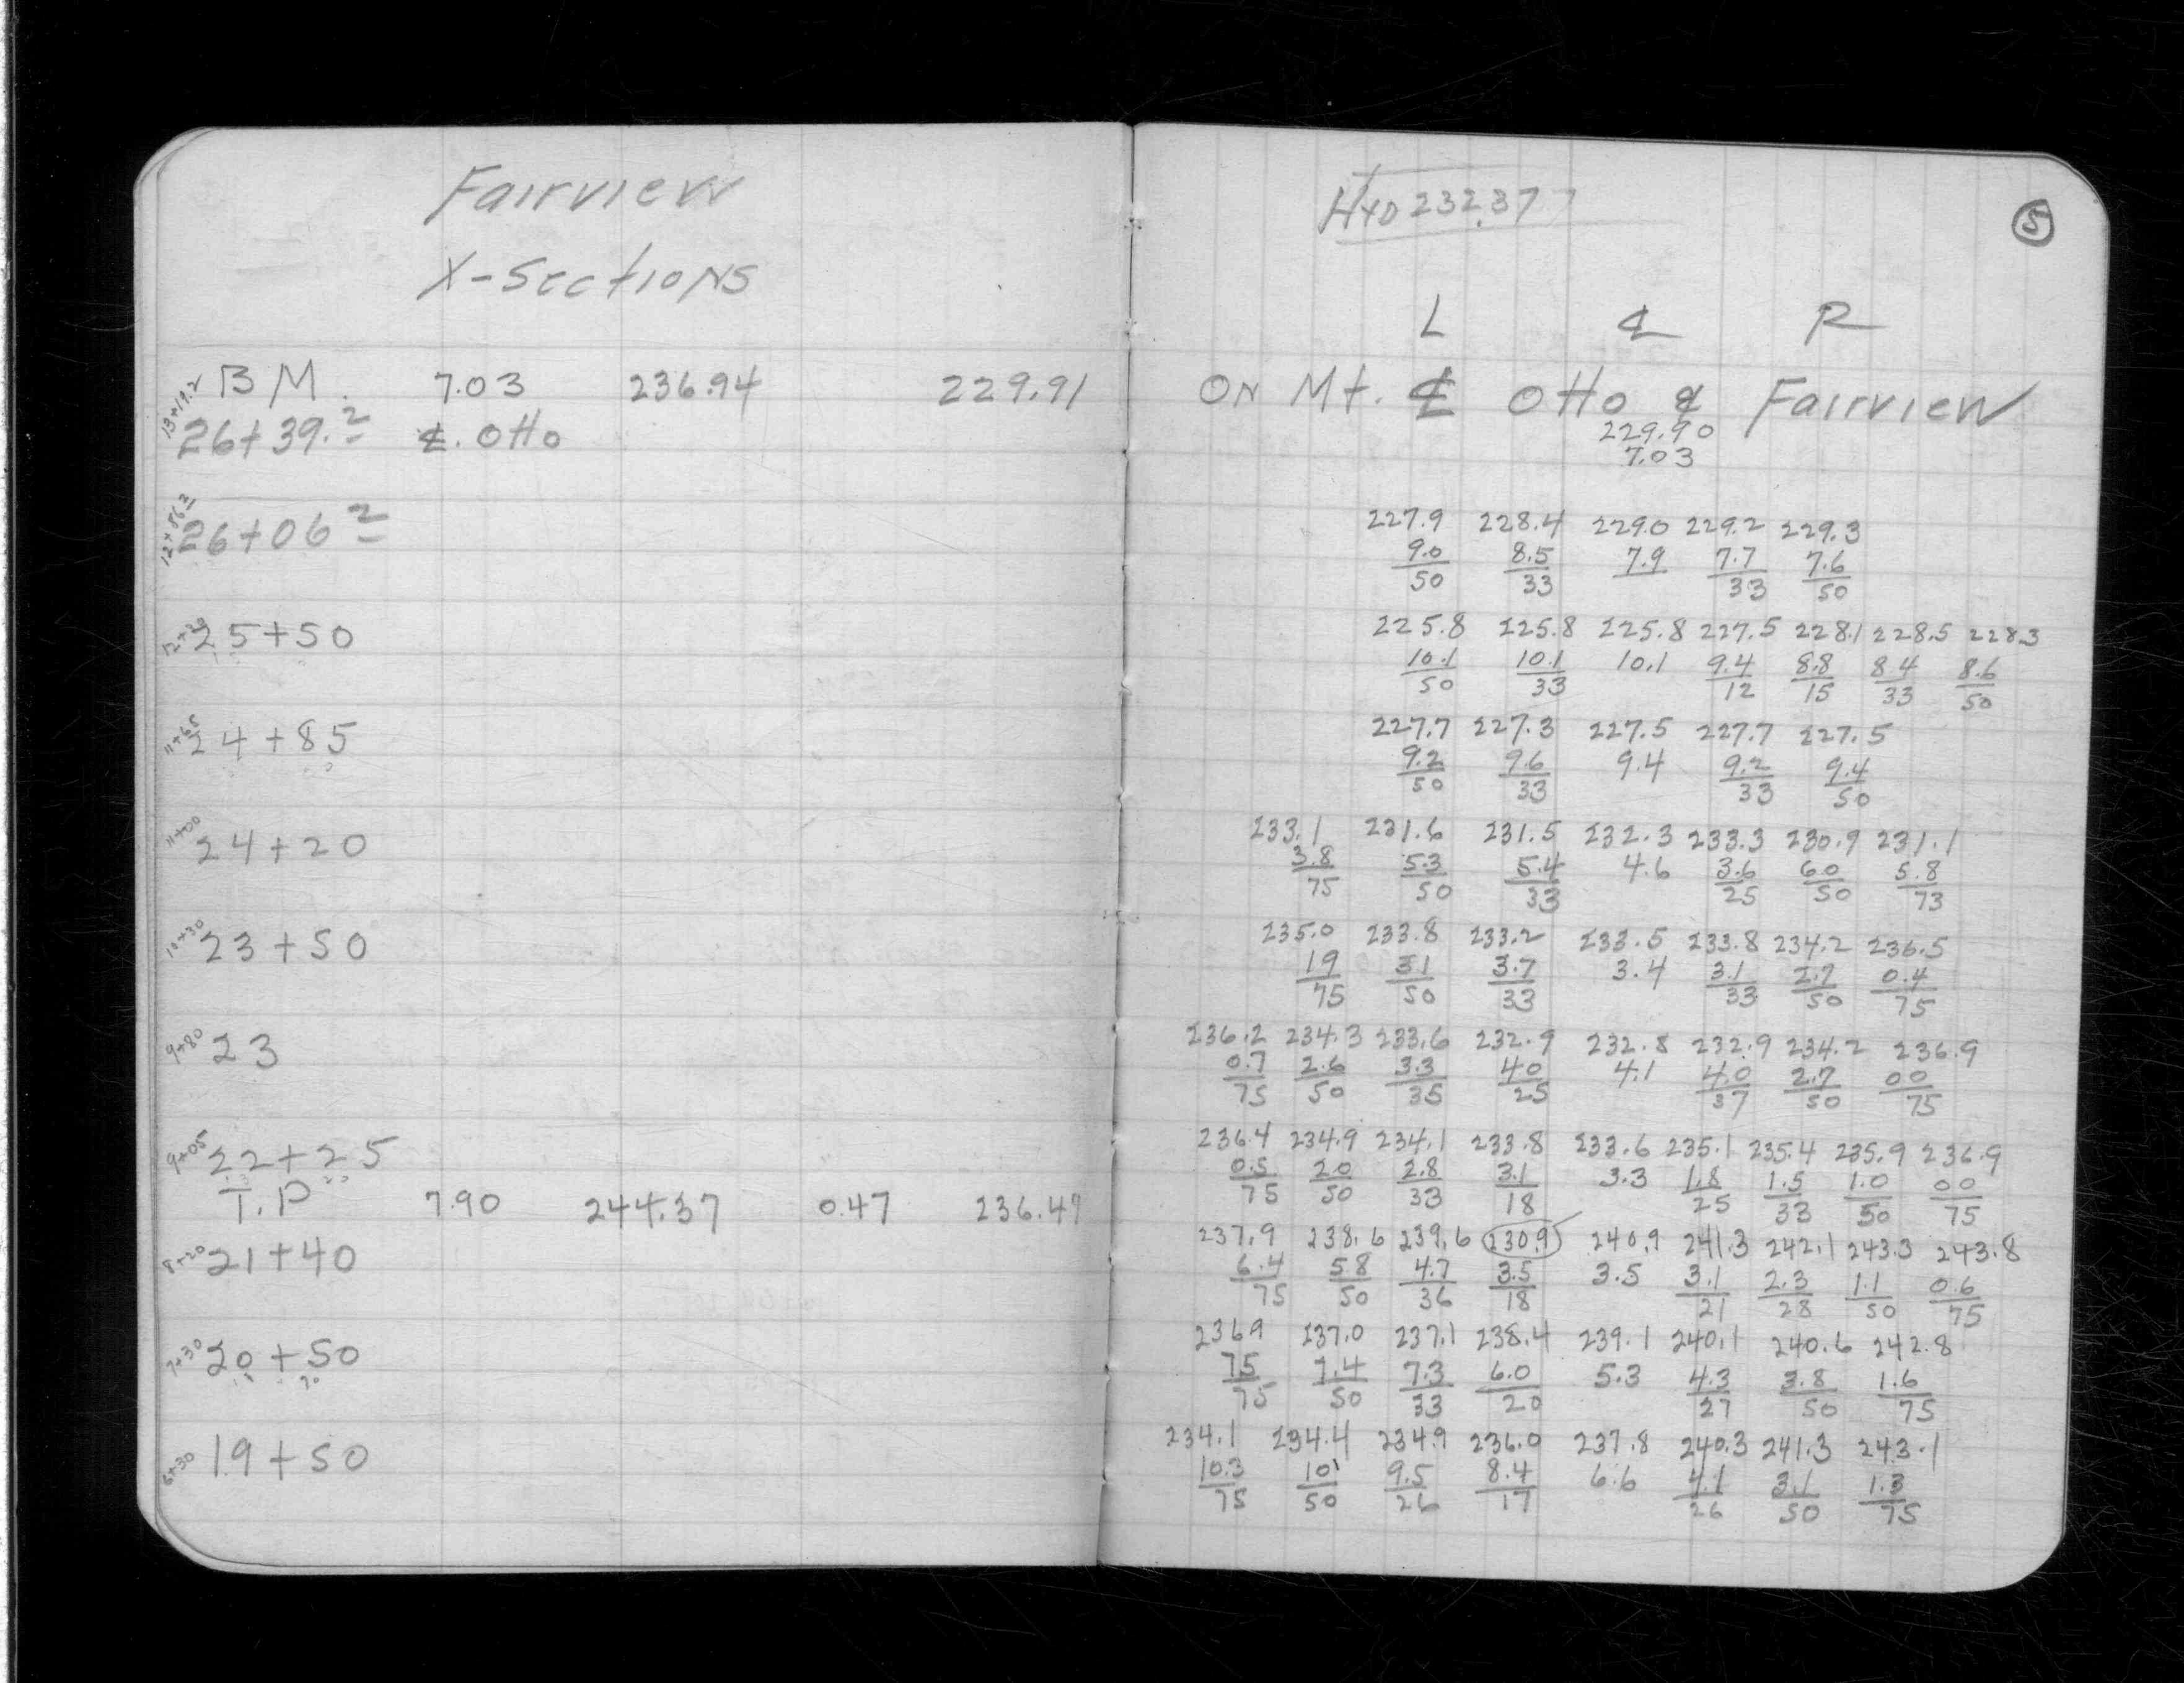 Fairview
X-Sections
13+19.2
BM. 7.03 236.94 229.91
26+39.2 ℄. Otto
26+06 2
12+20
25+50
11+65
24+85
11+00
24+20
10+30
23+50
9+80
23
9+05
22+25
T.P 7.90 244.37 0.47 236.47
8+20
21+40
7+30
20+50
6+30
19+50
HYD 232.37
5
L ℄ R
ON Mt. ℄ Otto ℄ Fairview
229.90
7.03
227.9 228.4 229.0 229.2 229.3
9.0 8.5 7.9 7.7 7.6
50 33 33 50
225.8 225.8 225.8 227.5 228.1 228.5 228.3
10.1 10.1 10.1 9.4 8.8 8.4 8.6
50 33 12 15 33 50
227.7 227.3 227.5 227.7 227.5
9.2 9.6 9.4 9.2 9.4
50 33 33 50
233.1 231.6 231.5 232.3 233.3 230.9 231.1
3.8 5.3 5.4 4.6 3.6 6.0 5.8
75 50 33 25 50 73
235.0 233.8 233.2 233.5 233.8 234.2 236.5
19 3.1 3.7 3.4 3.1 2.7 0.4
75 50 33 33 50 75
236.2 234.3 233.6 232.9 232.8 232.9 234.2 236.9
0.7 2.6 3.3 4.0 4.1 4.0 2.7 00
75 50 35 25 37 50 75
236.4 234.9 234.1 233.8 233.6 235.1 235.4 235.9 236.9
0.5 2.0 2.8 3.1 3.3 1.8 1.5 1.0 00
75 50 33 18 25 33 50 75
237.9 238.6 239.6 230.9 240.9 241.3 242.1 243.3 243.8
6.4 5.8 4.7 3.5 3.5 3.1 2.3 1.1 0.6
75 50 36 18 21 28 50 75
236.9 237.0 237.1 238.4 239.1 240.1 240.6 242.8
75 7.4 7.3 6.0 5.3 4.3 3.8 1.6
75 50 33 20 27 50 75
234.1 234.4 234.9 236.0 237.8 240.3 241.3 243.1
10.3 10 9.5 8.4 6.6 4.1 3.1 1.3
75 50 26 17 26 50 75